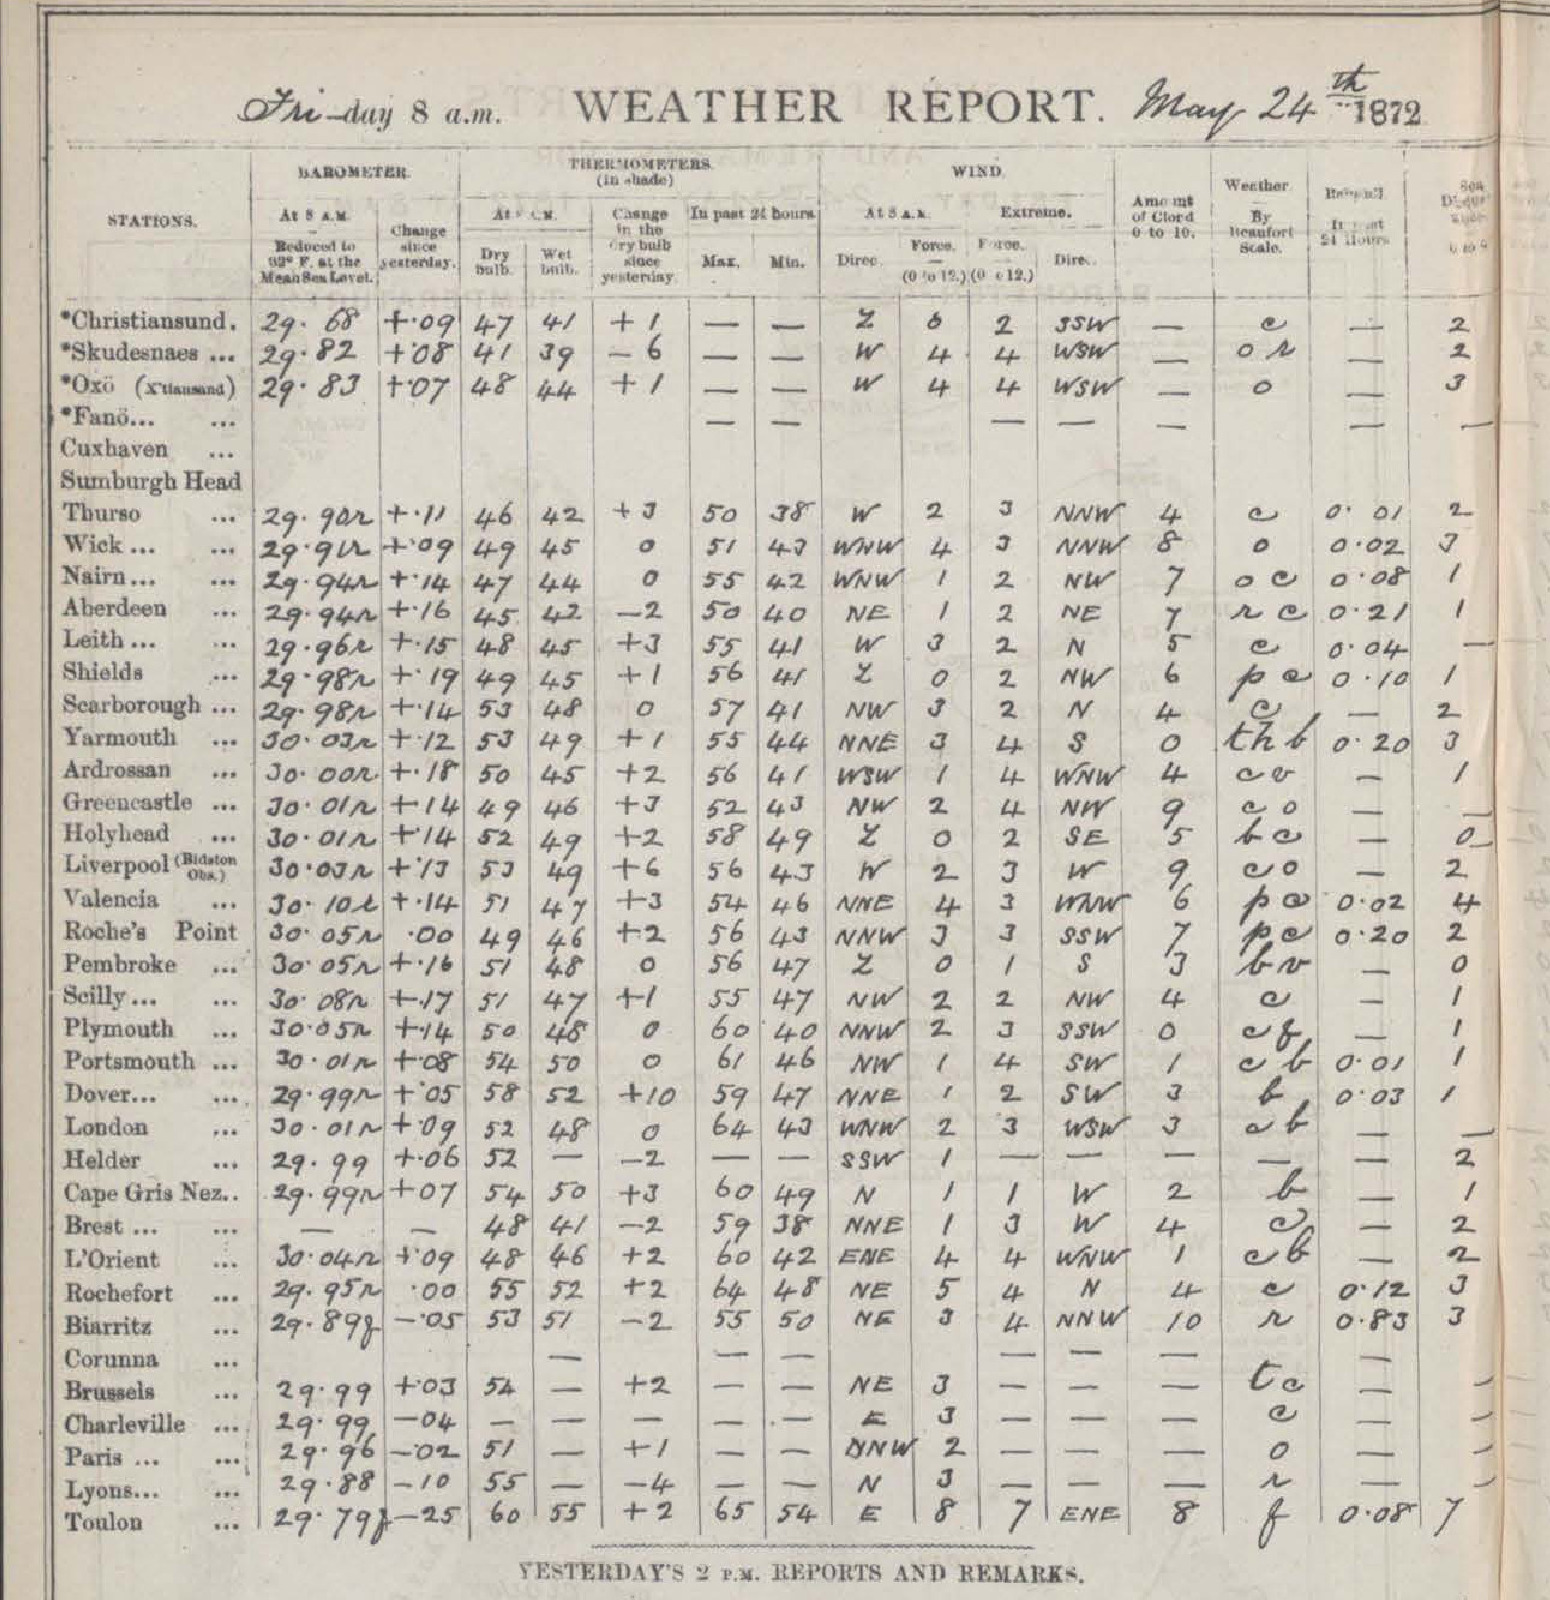 Fri-day 8 a.m. WEATHER REPORT. May 24th 1872
STATIONS. BAROMETER. THERMOMETERS. (in shade) WIND. Amount of Cloud 0 to 10. Weather By Beaufort Scale. Rainfall In past 24 Hours Sea
At 8 A.M. Reduced to 32° F. at the Mean Sea Level. Change since yesterday. At 8 A.M. Dry bulb. Wet bulb. Change in the Dry bulb since yesterday. In past 24 hours Max. Min. At 8 A.M. Direc. Force. (0 to 12.) Extreme. Force. (0 to 12.) Direc.
*Christiansund. 29.68 +.09 47 41 +1 — — Z 0 2 SSW — c — 2
*Skudesnaes ... 29.82 +.08 41 39 −6 — — W 4 4 WSW — o r — 2
*Oxö (X'tiansand) 29.83 +.07 48 44 +1 — — W 4 4 WSW — o — 3
*Fanö... ... — — — — — — —
Cuxhaven ...
Sumburgh Head
Thurso ... 29.90r +.11 46 42 +3 50 38 W 2 3 NNW 4 c 0.01 2
Wick ... ... 29.91r +.09 49 45 0 51 43 WNW 4 3 NNW 8 o 0.02 3
Nairn ... ... 29.94r +.14 47 44 0 55 42 WNW 1 2 NW 7 o c 0.08 1
Aberdeen ... 29.94r +.16 45 42 −2 50 40 NE 1 2 NE 7 r c 0.21 1
Leith ... ... 29.96r +.15 48 45 +3 55 41 W 3 2 N 5 c 0.04 —
Shields ... 29.98r +.19 49 45 +1 56 41 Z 0 2 NW 6 p c 0.10 1
Scarborough ... 29.98r +.14 53 48 0 57 41 NW 3 2 N 4 c — 2
Yarmouth ... 30.03r +.12 53 49 +1 55 44 NNE 3 4 S 0 t h b 0.20 3
Ardrossan ... 30.00r +.18 50 45 +2 56 41 WSW 1 4 WNW 4 c v — 1
Greencastle ... 30.01r +14 49 46 +3 52 43 NW 2 4 NW 9 c o — —
Holyhead ... 30.01r +.14 52 49 +2 58 49 Z 0 2 SE 5 b c — 0
Liverpool (Bidston Obs.) 30.03r +.13 53 49 +6 56 43 W 2 3 W 9 c o — 2
Valencia ... 30.10t +.14 51 47 +3 54 46 NNE 4 3 WNW 6 p c 0.02 4
Roche's Point 30.05r .00 49 46 +2 56 43 NNW 3 3 SSW 7 p c 0.20 2
Pembroke ... 30.05r +.16 51 48 0 56 47 Z 0 1 S 3 b v — 0
Scilly ... ... 30.08r +.17 51 47 +1 55 47 NW 2 2 NW 4 c — 1
Plymouth ... 30.05r +.14 50 48 0 60 40 NNW 2 3 SSW 0 c f — 1
Portsmouth ... 30.01r +.08 54 50 0 61 46 NW 1 4 SW 1 c b 0.01 1
Dover... ... 29.99r +.05 58 52 +10 59 47 NNE 1 2 SW 3 b 0.03 1
London ... 30.01r +.09 52 48 0 64 43 WNW 2 3 WSW 3 c b — —
Helder ... 29.99 +.06 52 — −2 — — SSW 1 — — — — — 2
Cape Gris Nez.. 29.99r +07 54 50 +3 60 49 N 1 1 W 2 b — 1
Brest ... ... — — 48 41 −2 59 38 NNE 1 3 W 4 c — 2
L'Orient ... 30.04r +.09 48 46 +2 60 42 ENE 4 4 WNW 1 c b — 2
Rochefort ... 29.95r .00 55 52 +2 64 48 NE 5 4 N 4 c 0.12 3
Biarritz ... 29.89f −.05 53 51 −2 55 50 NE 3 4 NNW 10 r 0.83 3
Corunna ... — — — — — — —
Brussels ... 29.99 +.03 54 — +2 — — NE 3 — — — t c — —
Charleville ... 29.99 −04 — — — — — E 3 — — — c — —
Paris ... ... 29.96 −02 51 — +1 — — NNW 2 — — — o — —
Lyons... ... 29.88 −10 55 — −4 — — N 3 — — — r — —
Toulon ... 29.79f −25 60 55 +2 65 54 E 8 7 ENE 8 f 0.08 7
YESTERDAY'S 2 P.M. REPORTS AND REMARKS.